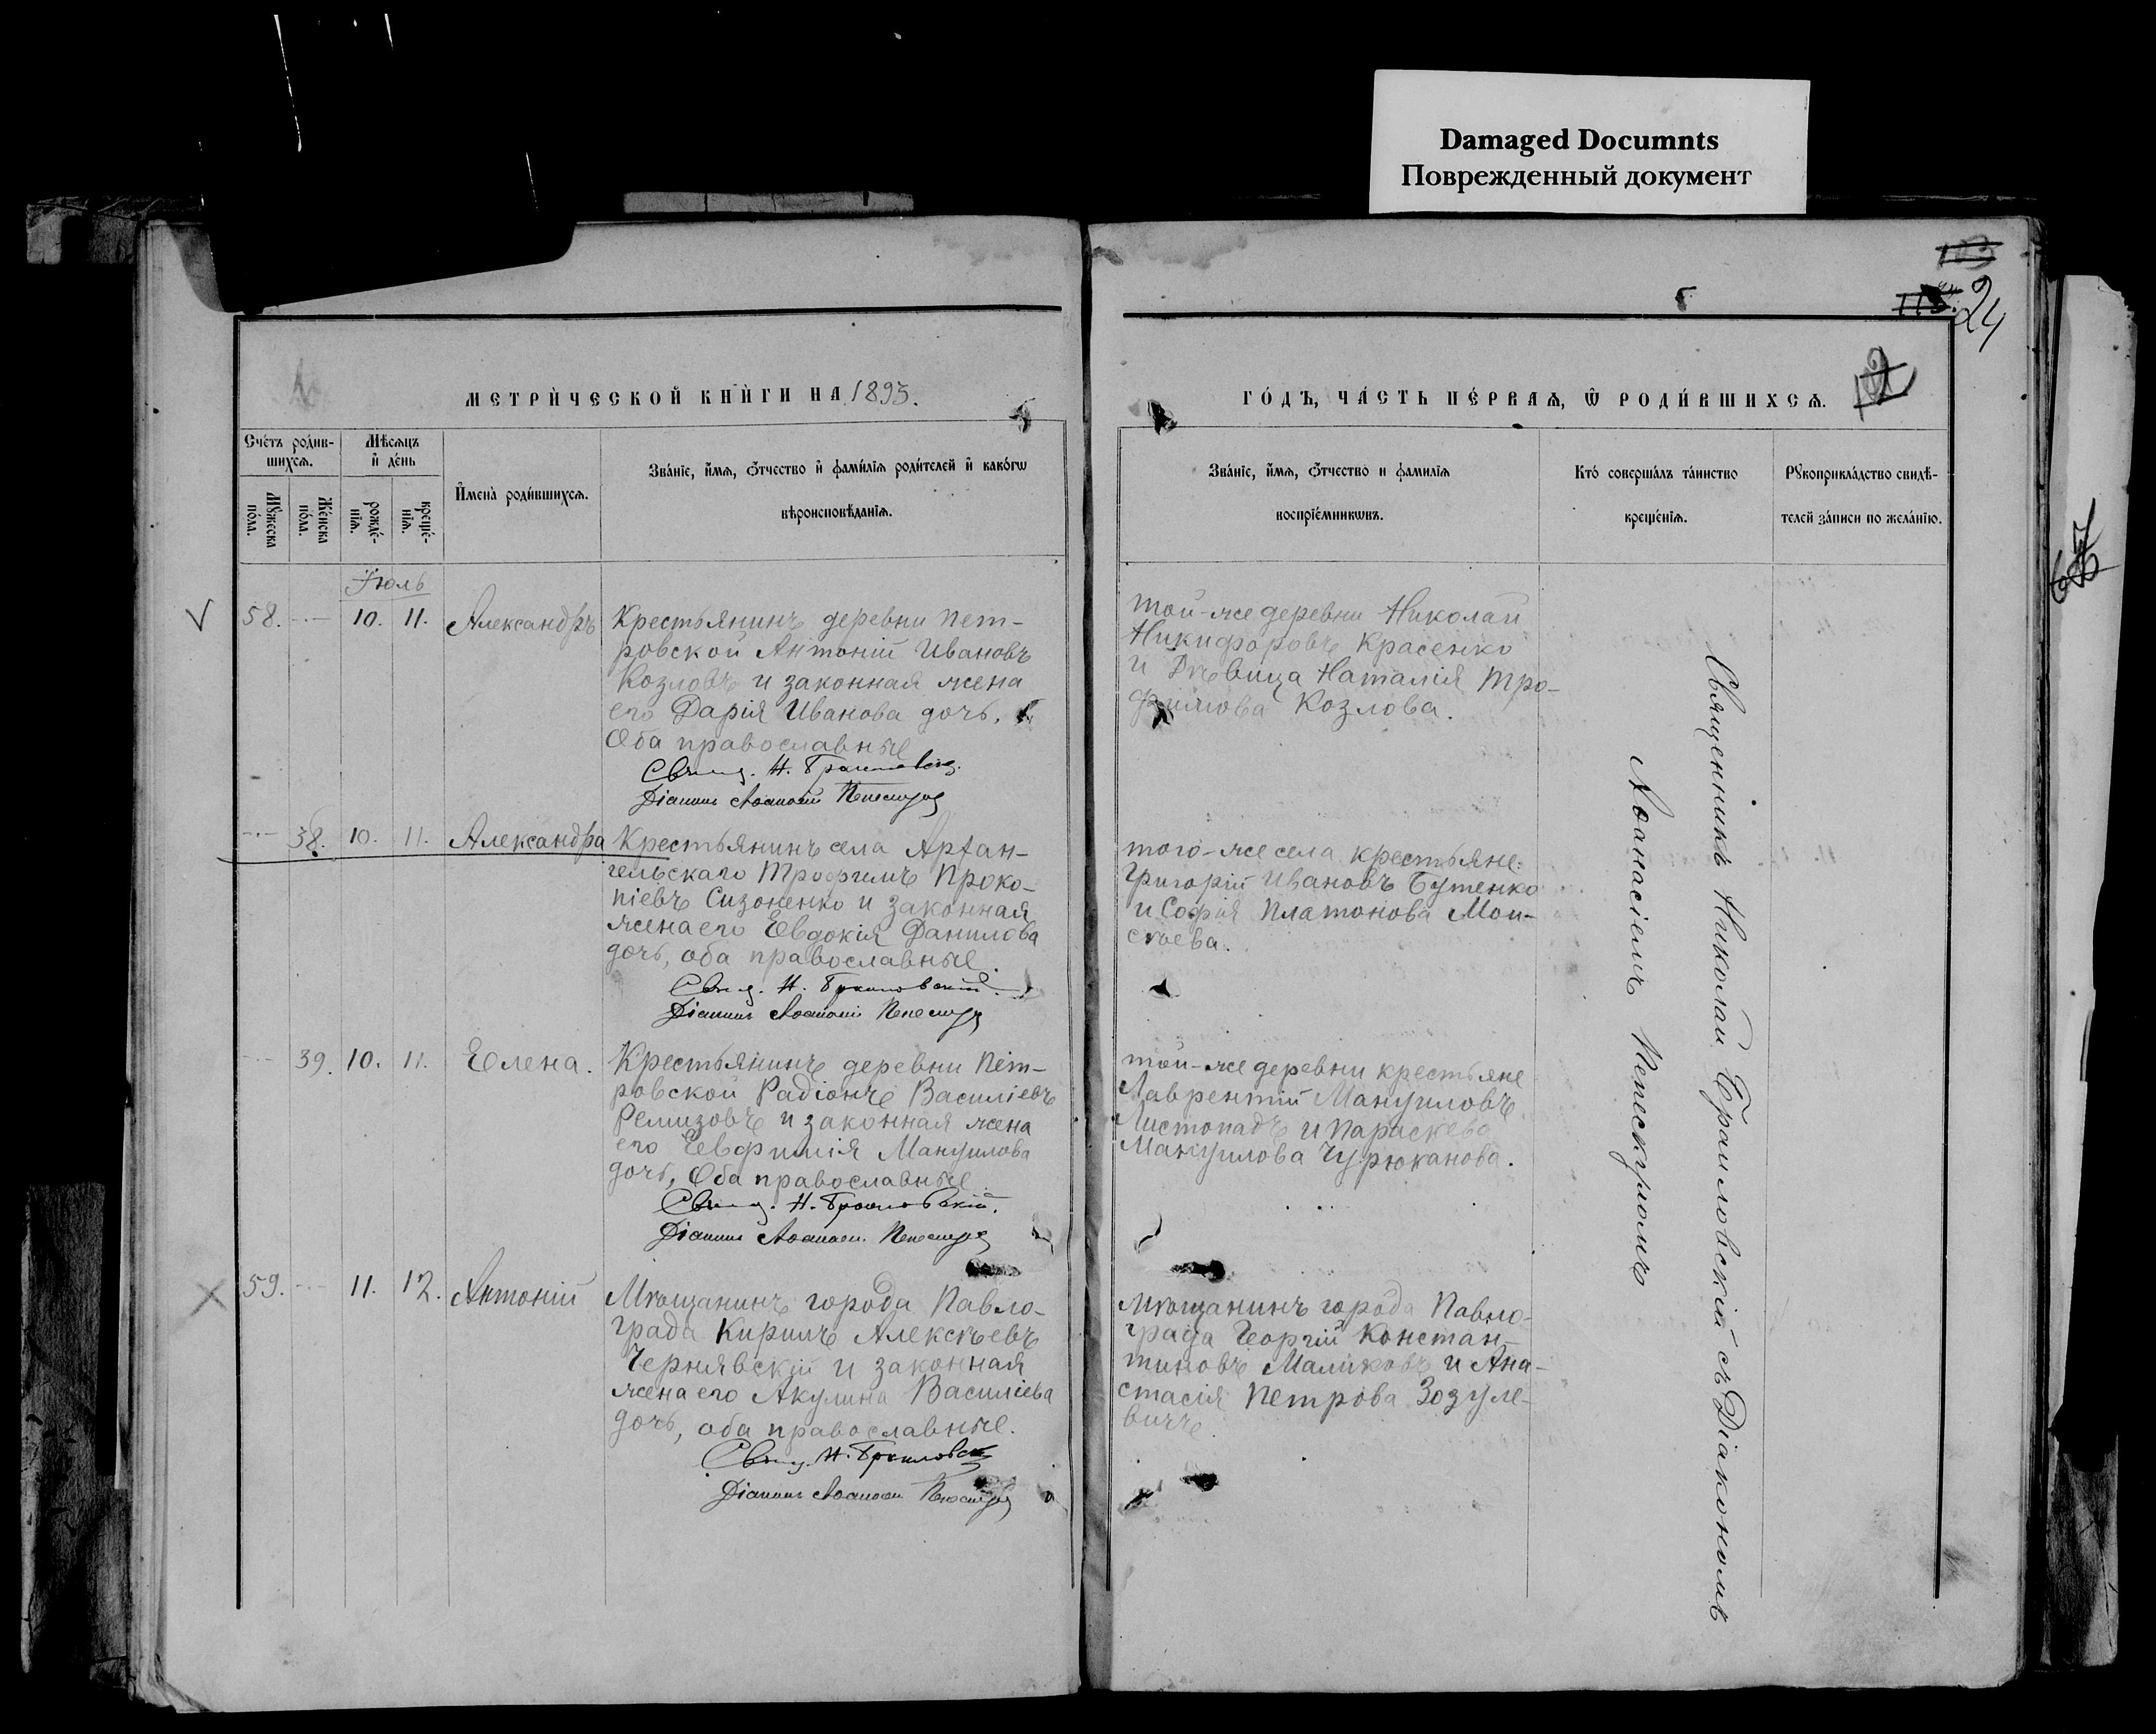 Damaged Documnts
Поврежденный документ
24
МЕТРИ́ЧЕСКОЙ КНИ́ГИ НА 1895.
ГО́ДЪ, ЧА́СТЬ ПЕ́РВАѦ, Ѿ РОДИ́ВШИХСѦ.
Сче́тъ роди́в-
шихсѧ.
Мꙋ́жеска
по́ла.
Же́нска
по́ла.
Мѣ́сѧцъ
и҆ де́нь
рожде́-
нїѧ.
креще́-
нїѧ.
И҆мена̀ роди́вшихсѧ.
Зва́нїе, и҆́мѧ, ѻ҆́тчество и҆ фами́лїѧ роди́телей и҆ како́гѡ
вѣроисповѣ́данїѧ.
Зва́нїе, и҆́мѧ, ѻ҆́тчество и фамилїѧ
воспрїе́мникѡвъ.
Кто́ соверша́лъ та́инство
креще́нїѧ.
Рꙋкоприкла́дство свидѣ́-
телей за́писи по жела́нїю.
Іюль
58. 10. 11. Александръ
Крестьянинъ деревни Пет-
ровской Антоній Ивановъ
Козловъ и законная жена
его Дарія Иванова дочь.
Оба православные
Свящ. Н. Браиловскій.
Діаконъ Аѳанасій Пепескулъ
той-же деревни Николай
Никифоровъ Красенко
и Дѣвица Наталія Тро-
фимова Козлова.
38. 10. 11. Александра
Крестьянинъ села Архан-
гельскаго Трофимъ Проко-
піевъ Сизоненко и законная
жена его Евдокія Данилова
дочь, оба православные.
Свящ. Н. Браиловскій.
Діаконъ Аѳанасій Пепескулъ
того-же села крестьяне:
Григорій Ивановъ Бутенко
и Софія Платонова Мои-
сѣева.
39. 10. 11. Елена.
Крестьянинъ деревни Пет-
ровской Радіонъ Василіевъ
Ремизовъ и законная жена
его Евфимія Мануилова
дочь, Оба православные
Свящ. Н. Браиловскій.
Діаконъ Аѳанасій Пепескулъ
той-же деревни крестьяне
Лаврентій Мануиловъ
Листопадъ и Параскева
Мануилова Чурюканова.
59. 11. 12. Антоній
Мѣщанинъ города Павло-
града Кирилъ Алексѣевъ
Чернявскій и законная
жена его Акулина Василіева
дочь, оба православные.
Свящ. Н. Браиловскій
Діаконъ Аѳанасій Пепескулъ
Мѣщанинъ города Павло-
града Георгій Констан-
тиновъ Маликовъ и Ана-
стасія Петрова Зозуле-
вичъ.
Священникъ Николай Браиловскій съ Діакономъ
Аѳанасіемъ Пепескуломъ